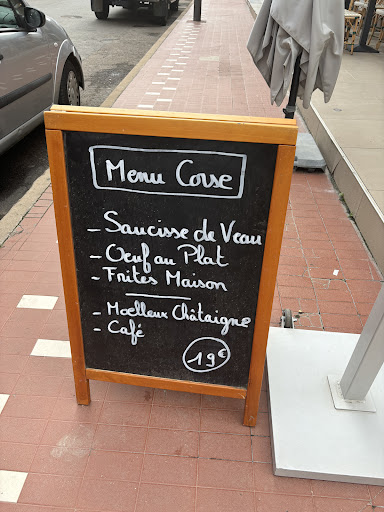 Menu Corse
- Saucisse de Veau
- Oeuf au Plat
- Frites Maison
- Moelleux Châtaigne
- Café
19€